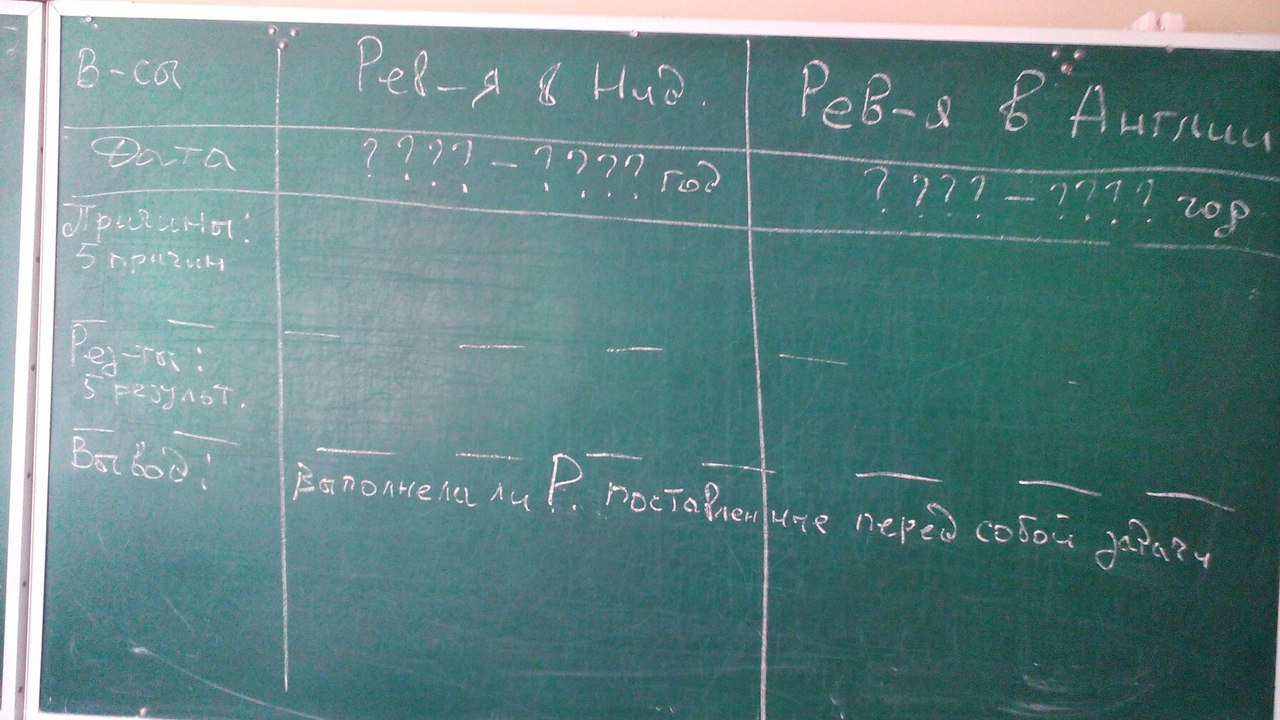 В-сы
Рев-я в Нид.
Рев-я в Англии
Дата
???? – ???? год
???? – ???? год
Причины:
5 причин
Рез-ты:
5 результ.
Вывод:
Выполнела ли Р. поставленные перед собой задачи